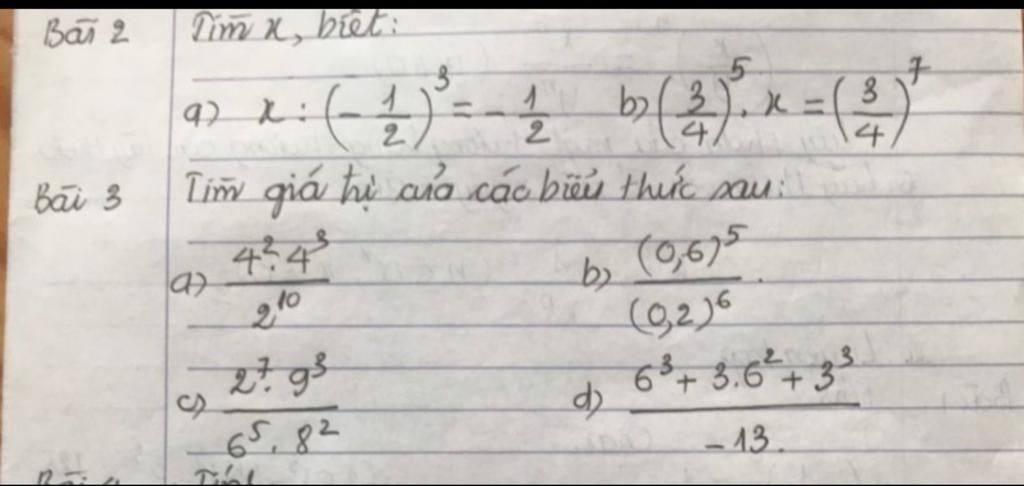 Bài 2 Tìm x, biết:
a) x : (-1/2)³ = -1/2 b) (3/4)⁵ . x = (3/4)⁷
Bài 3 Tìm giá trị của các biểu thức sau:
a) 4² . 4³ / 2¹⁰ b) (0,6)⁵ / (0,2)⁶ .
c) 2⁷ . 9³ / 6⁵ . 8² d) 6³ + 3.6² + 3³ / -13.